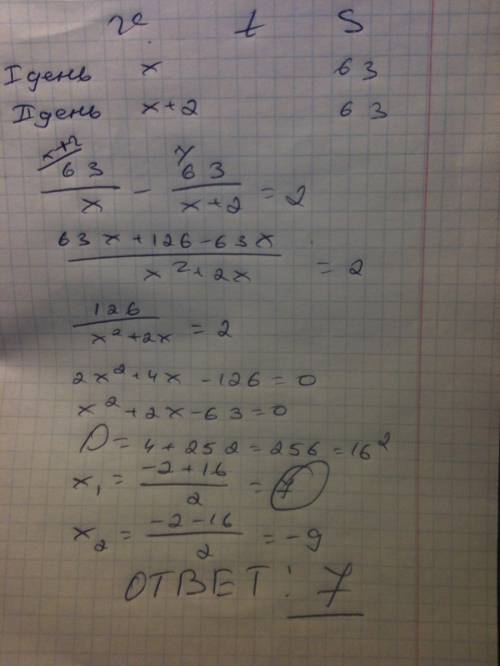 v t S
I день x 63
II день x+2 63
x+2
63/x - 63/x+2 = 2
63x+126-63x/x²+2x = 2
126/x²+2x = 2
2x²+4x-126=0
x²+2x-63=0
D=4+252=256=16²
x₁ = -2+16/2 = 7
x₂ = -2-16/2 = -9
ОТВЕТ: 7